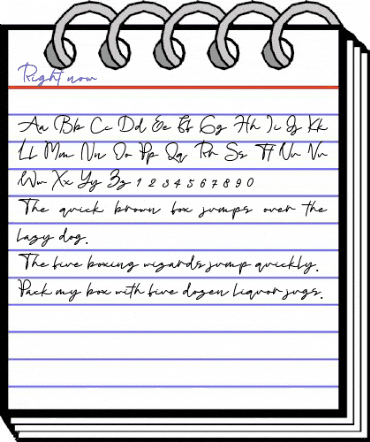 Right now
Aa Bb Cc Dd Ee Ff Gg Hh Ii Jj Kk
Ll Mm Nn Oo Pp Qq Rr Ss Tt Uu Vv
Ww Xx Yy Zz 1 2 3 4 5 6 7 8 9 0
The quick brown fox jumps over the
lazy dog.
The five boxing wizards jump quickly.
Pack my box with five dozen liquor jugs.